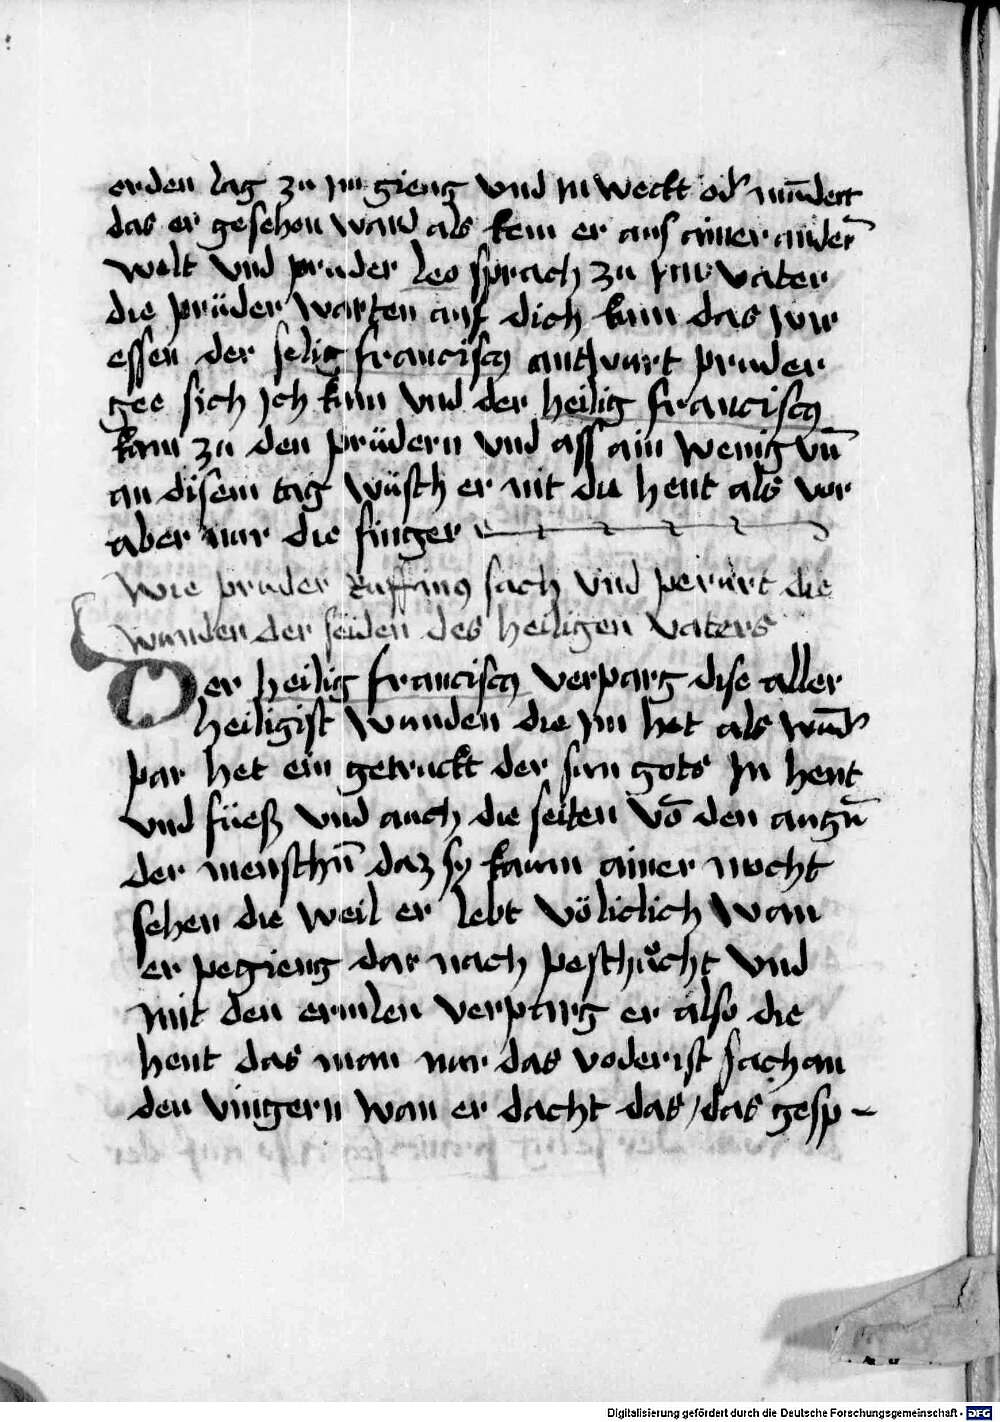 erden lag zu im gieng vnd in weckt od' mūdert
das er gesehen ward als kem er aus ainer anderñ
welt vnd pruder leo sprach zu im vater
die prüder warten auf dich kum das wir
essen der selig franciscꝰ antwurt pruder
gee sich ich kum vnd der heilig franciscꝰ
kam zu den prüdern vnd ass ain wenig vñ
an disem tag wüsch er nit die hent als vor
aber nur die finger
Wie pruder Ruffinꝰ sach vnd perürt die
wunden der seiden des heiligen vaters
Der heilig franciscꝰ verparg dise aller
heiligist wunden die im het als wūd'
par het ein getruckt der sun gots in hent
vnd füeß vnd auch die seiten vō den augñ
der menschñ daz sy kaum ainer mocht
sehen die weil er lebt völiclich wan
er pegieng dar nach peschůcht vnd
mit den ermlen verparg er also die
hent das man nur das voderist sach an
den vingern wan er dacht das / das gesp
Digitalisierung gefördert durch die Deutsche Forschungsgemeinschaft - DFG